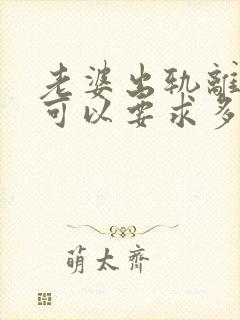 老婆出轨離
可以要求多
萌太齊